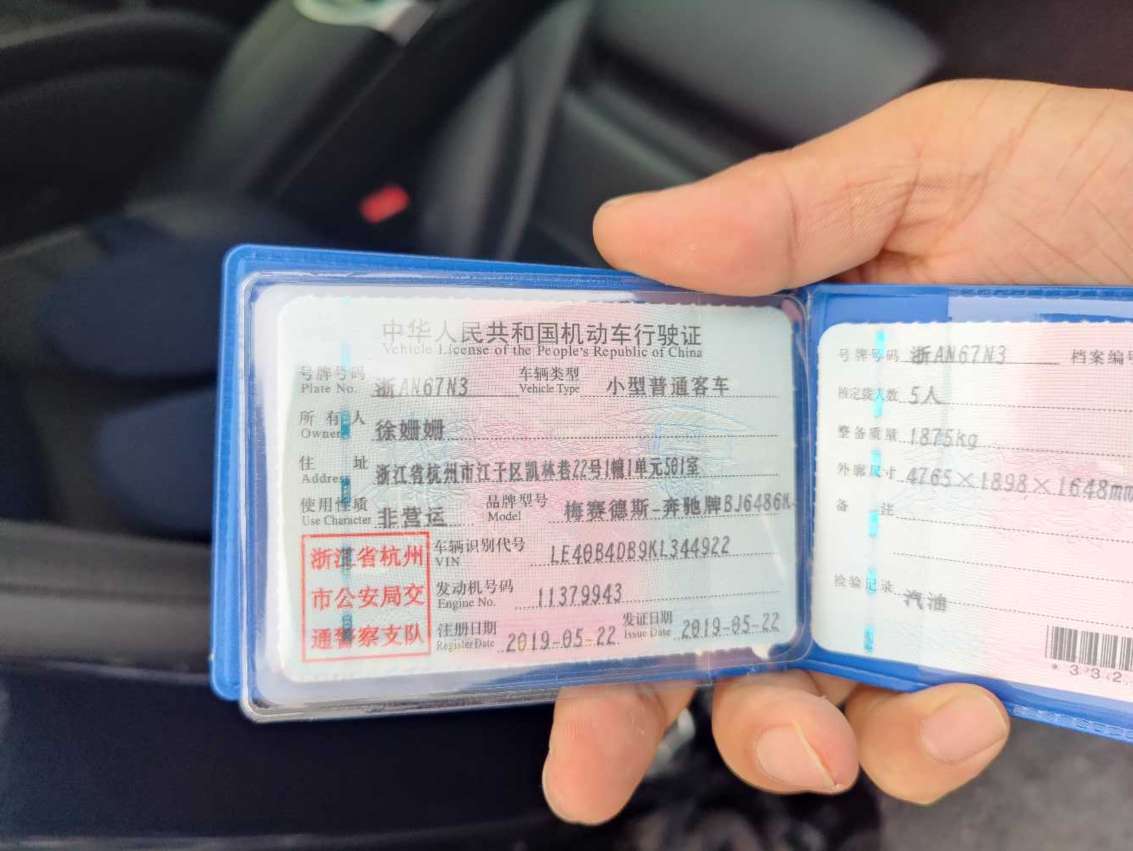 中华人民共和国机动车行驶证
Vehicle License of the People's Republic of China
号牌号码 浙AN67N3 车辆类型 小型普通客车
Plate No. Vehicle Type
所有人 徐姗姗
Owner
住址 浙江省杭州市江干区凯林巷22号1幢1单元501室
Address
使用性质 非营运 品牌型号 梅赛德斯-奔驰牌BJ6486K
Use Character Model
浙江省杭州
市公安局交
通警察支队
车辆识别代号 LE40B4DB9KL344922
VIN
发动机号码 11379943
Engine No.
注册日期 2019-05-22 发证日期 2019-05-22
Register Date Issue Date
号牌号码 浙AN67N3 档案编号
核定载人数 5人
整备质量 1875kg
外廓尺寸 4765×1898×1648mm
备注
检验记录 汽油
*332